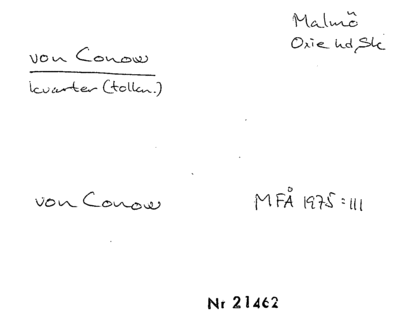 Malmö
Oxie hd, Sk
von Conow
kvarter (tolkn.)
von Conow
MFÅ 1975:111
Nr 21462